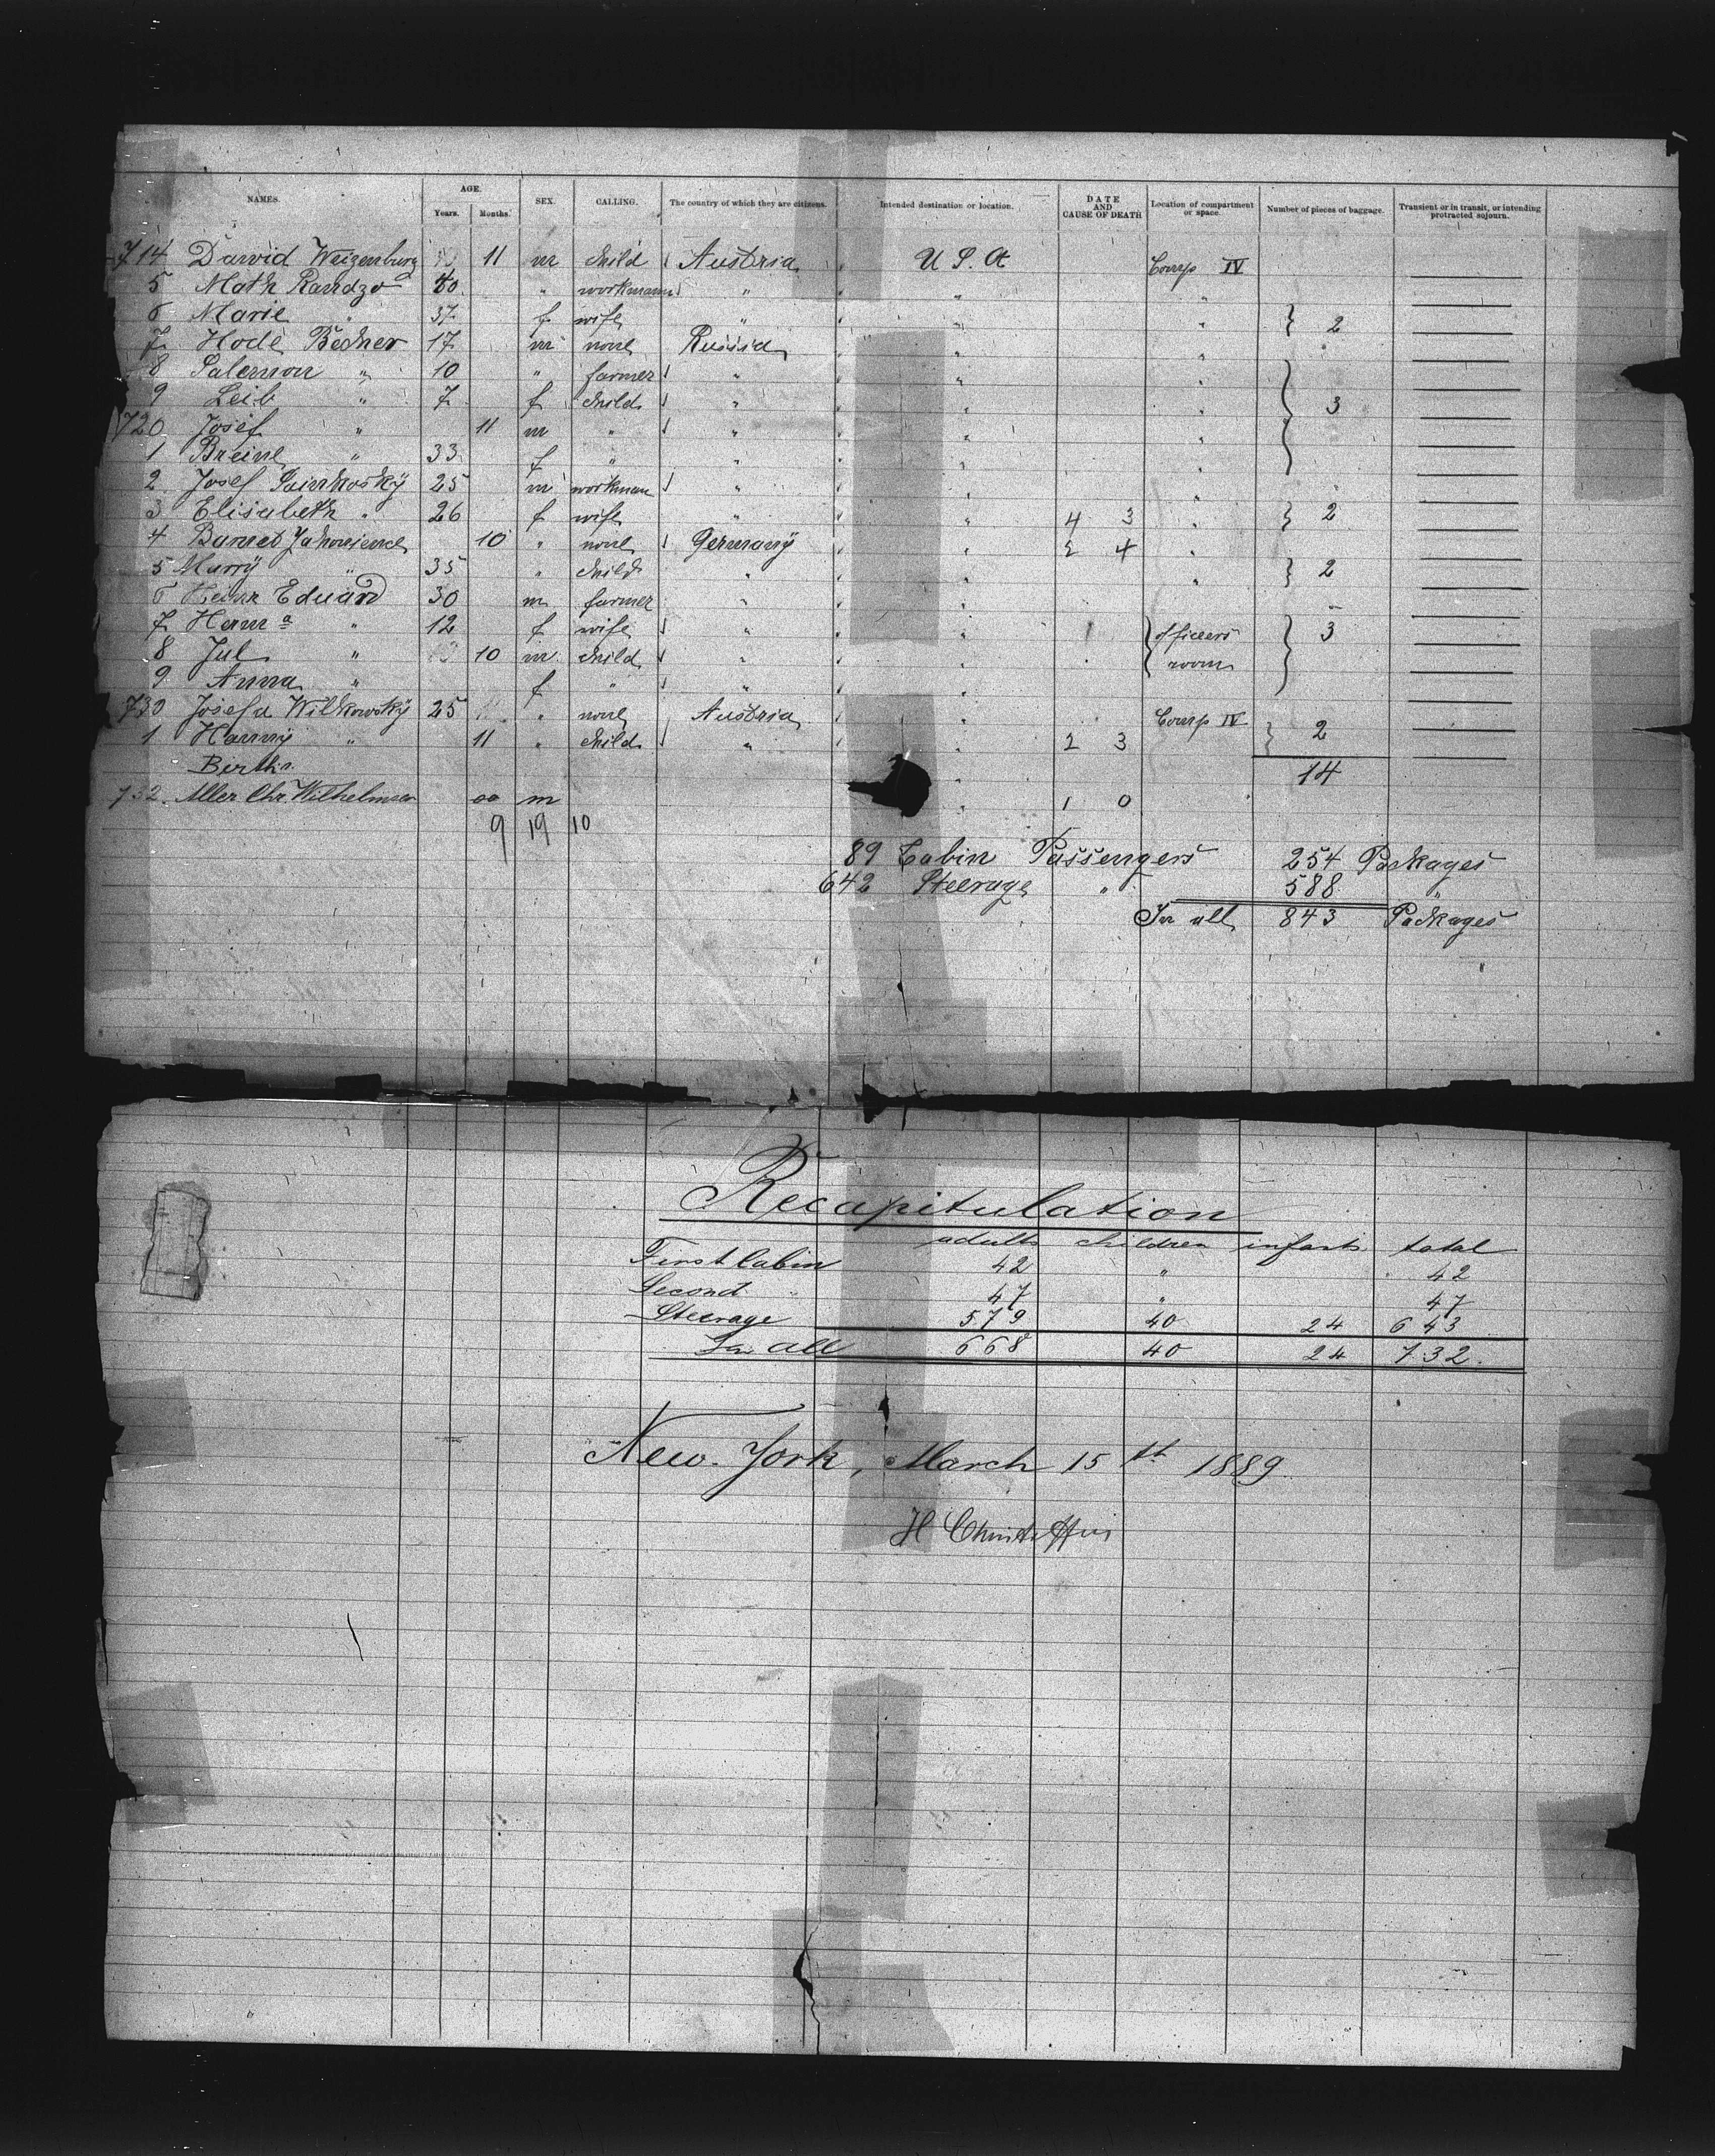 NAMES. AGE. Years. Months. SEX. CALLING. The country of which they are citizens. Intended destination or location. DATE AND CAUSE OF DEATH Location of compartment or space. Number of pieces of baggage. Transient or in transit, or intending protracted sojourn.
714 Dawid Weizenburg 11 m child Austria U S. A Comp IV
5 Math Randzo 40 " workmann " " "
6 Marie " 37 f wife " " " } 2
7 Hode Bedner 17 m none Russia " "
8 Salemon " 10 " farmer " " "
9 Leib " 7 f child " " " } 3
720 Josef " 11 m " " " "
1 Breine " 33 f " " "
2 Josef 25 m workman " " "
3 Elisabeth " 26 f wife " " 4 3 " } 2
4 10 " none Germany " 2 4 "
5 Marry " 35 " child " " " } 2
6 Eduard 30 m farmer " "
7 Hanna " 12 f wife " " } officers } 3
8 Jul " 10 m child " " room
9 Anna " f " "
730 Josefa Witkowsky 25 " none Austria " Comp IV
1 Hanny " 11 " child " " 2 3 } 2
Births. 14
732. Aller Chr. Wilhelmsen oo m " 1 0
9 19 10
89 Cabin Passengers 254 Packages
642 Steerage " 588 "
In all 843 Packages
Recapitulation
adults children infants total
First Cabin 42 " 42
Second " 47 " 47
Steerage 579 40 24 643
In all 668 40 24 732.
New-York, March 15th 1889
H Christoffers